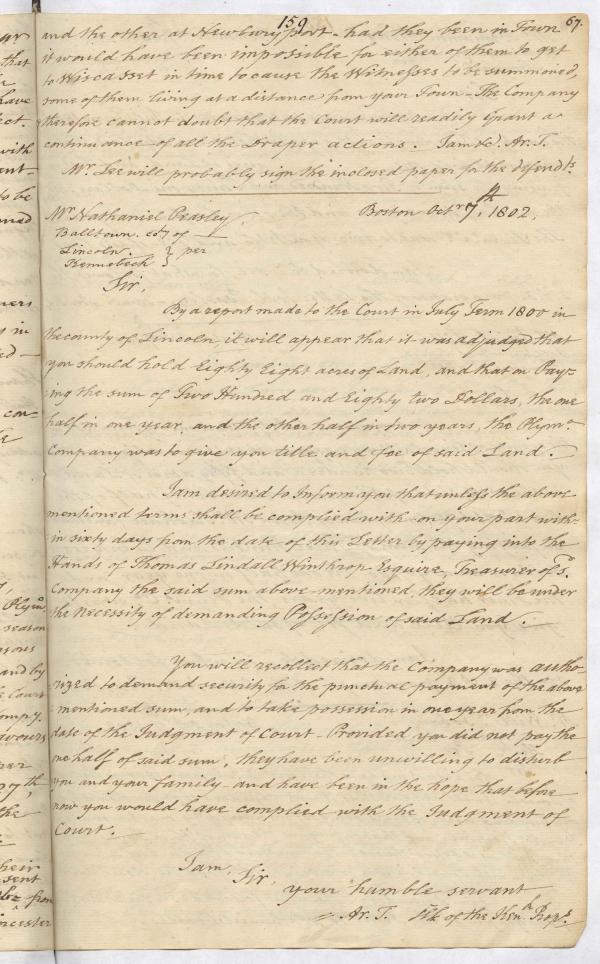 159
67.
and the other at Newburyport - had they been in Town
it would have been impossible for either of them to get
to Wiscasset in time to cause the Witnesses to be summoned,
some of them living at a distance from your Town - The Company
therefore cannot doubt that the Court will readily grant a
continuance of all the Draper actions. I am &c. Ar. T.
Mr. Lee will probably sign the inclosed paper for the defendts.
Boston Octr. 7th, 1802.
Mr. Nathaniel Peasley
Balltown. coty of
Lincoln. } per
Kennebeck }
Sir,
By a report made to the Court in July Term 1800 in
the county of Lincoln, it will appear that it was adjudged that
you should hold Eighty Eight acres of Land, and that on Pay-
ing the sum of Two Hundred and Eighty two Dollars, the one
half in one year, and the other half in two years, the Plymo.
Company was to give you title and fee of said Land.
I am desired to Inform you that unless the above
mentioned terms shall be complied with on your part with-
in sixty days from the date of this Letter by paying into the
Hands of Thomas Lindall Winthrop Esquire Treasurer of sd.
Company the said sum above mentioned, they will be under
the Necessity of demanding Possession of said Land.
You will recollect that the Company was autho-
rized to demand security for the punctual payment of the above
mentioned sum, and to take possession in one year from the
date of the Judgment of Court - Provided you did not pay the
one half of said sum, they have been unwilling to disturb
you and your family - and have been in the hope that before
now you would have complied with the Judgment of
Court.
I am, Sir,
your humble servant
Ar. T. of the Kenk. Props.
that
have
with
to be
in
con-
Plymo.
season
and by
Court
Compy.
7th,
the
their
sent
from